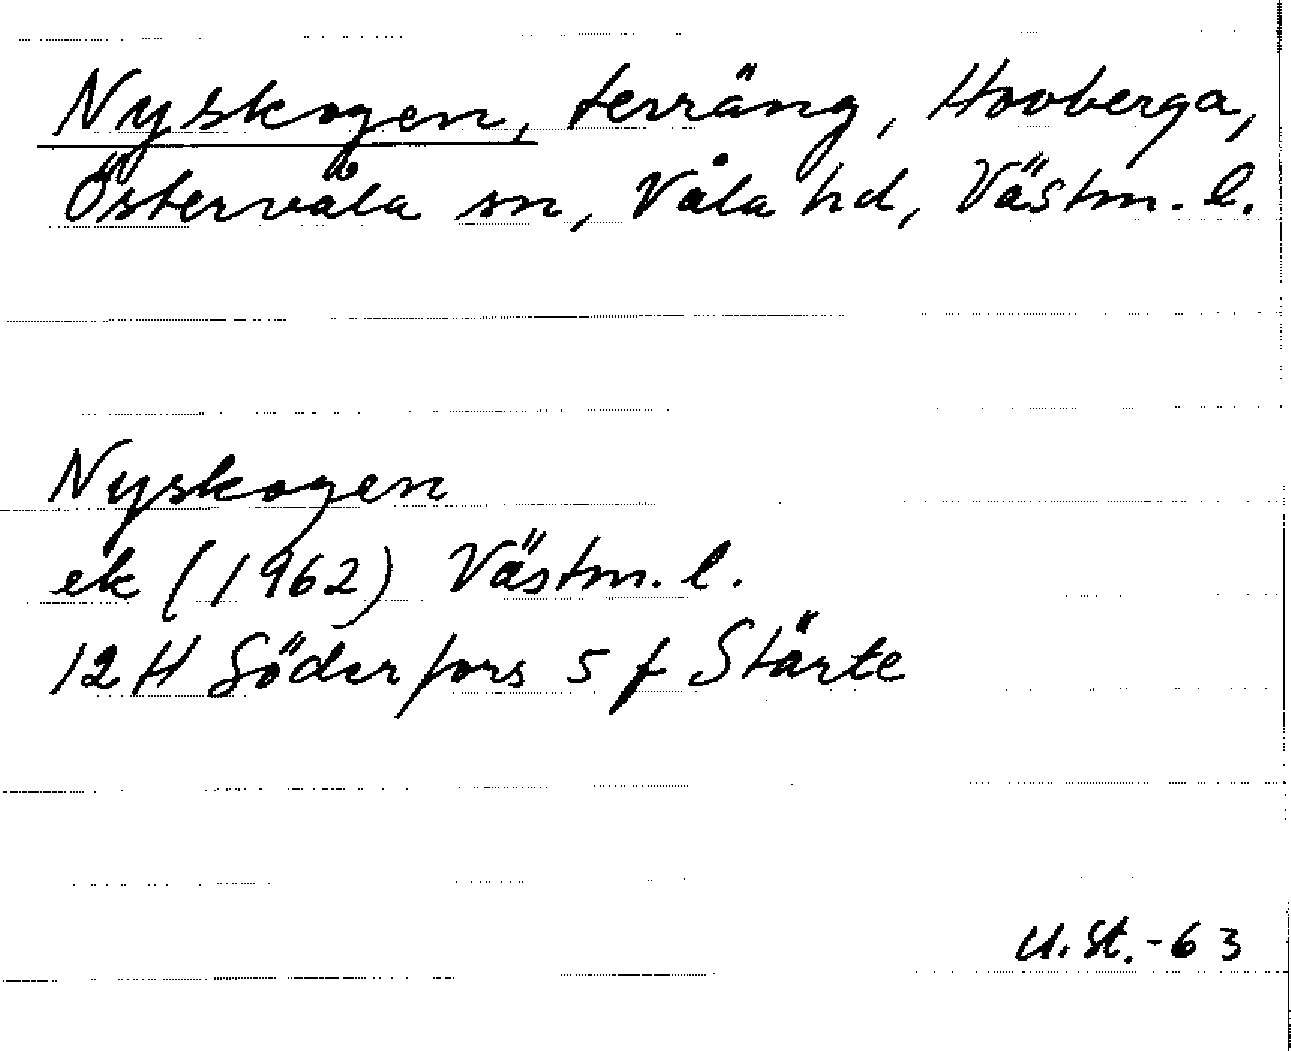 Nyskogen, terräng, Hovberga,
Östervåla sn, Våla hd, Västm. l.
Nyskogen
ek (1962) Västm. l.
12 H Söderfors 5 f Stärte
U. St. - 63